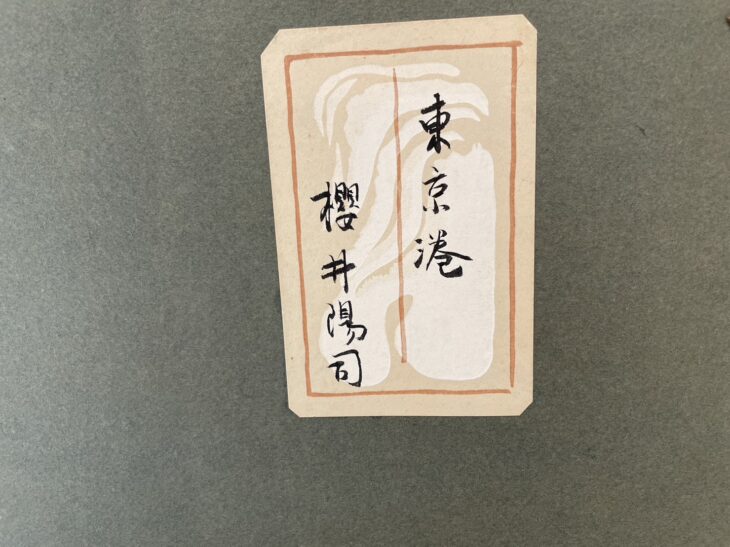 東京港
櫻井陽司